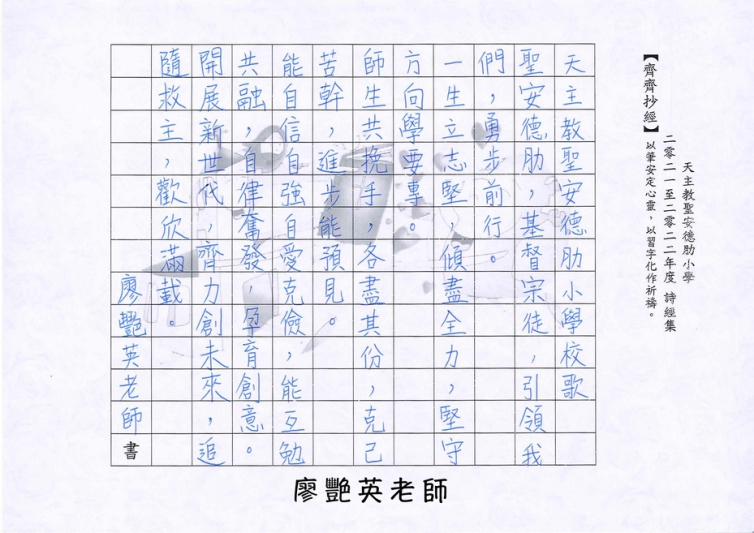 天主教聖安德肋小學
二零二一至二零二二年度 詩經集
【齊齊抄經】以筆安定心靈,以習字化作祈禱。
天主教聖安德肋小學校歌
聖安德肋,基督宗徒,引領我
們,勇步前行。
一生立志堅,傾盡全力,堅守
方向學要專。
師生共挽手,各盡其份,克己
苦幹,進步能預見。
能自信自強自愛克儉,能互勉
共融,自律奮發,孕育創意。
開展新世代,齊力創未來,追
隨救主,歡欣滿載。
廖艷英老師書
廖艷英老師